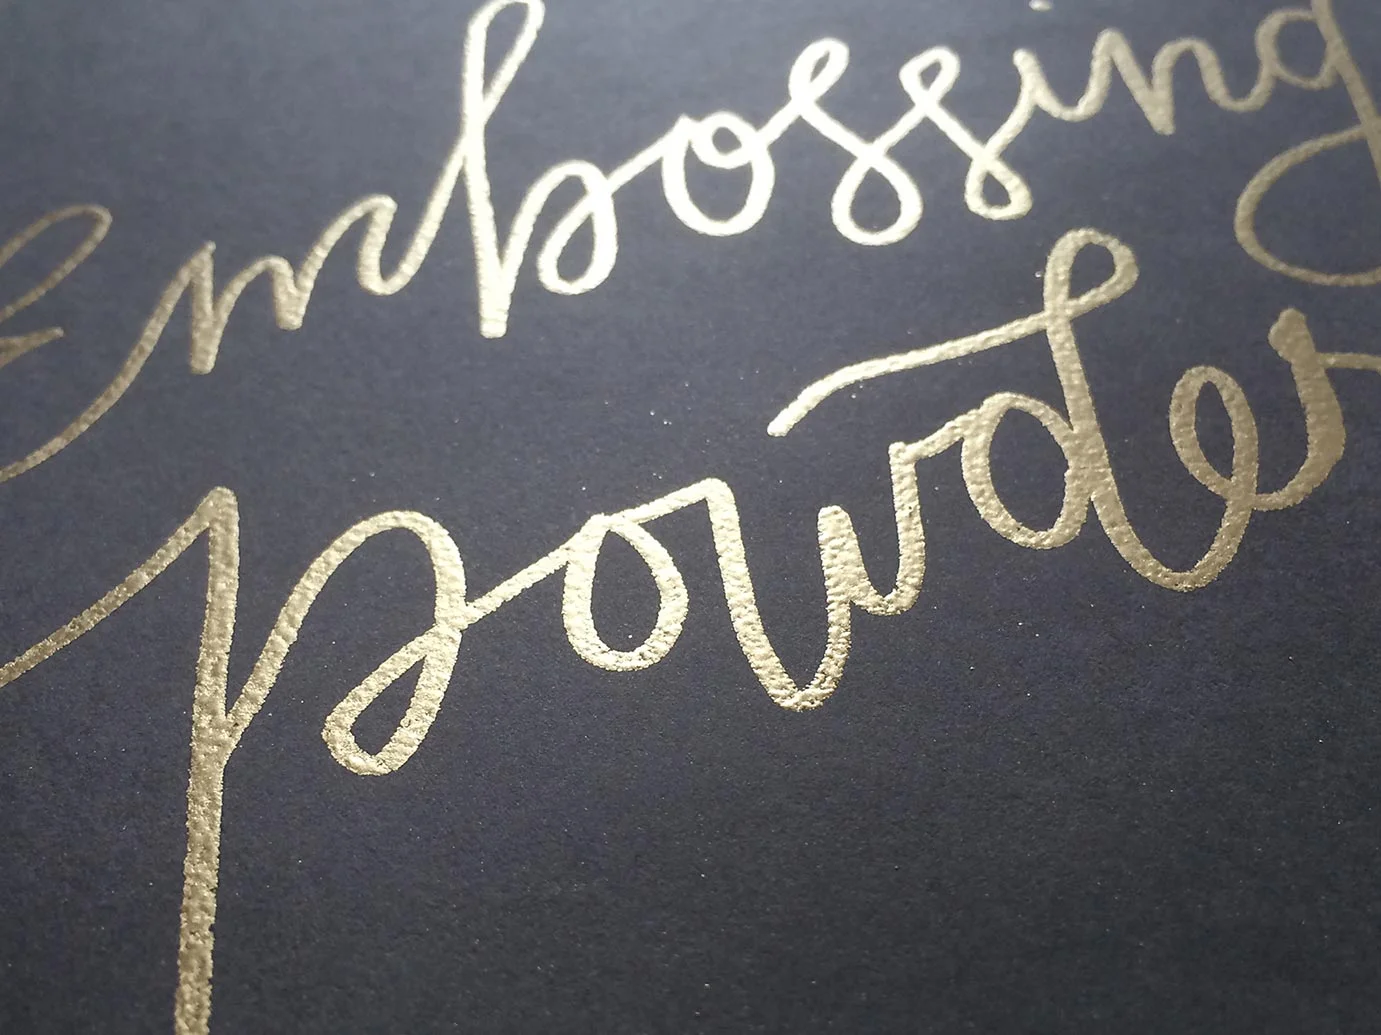 Embossing
powder